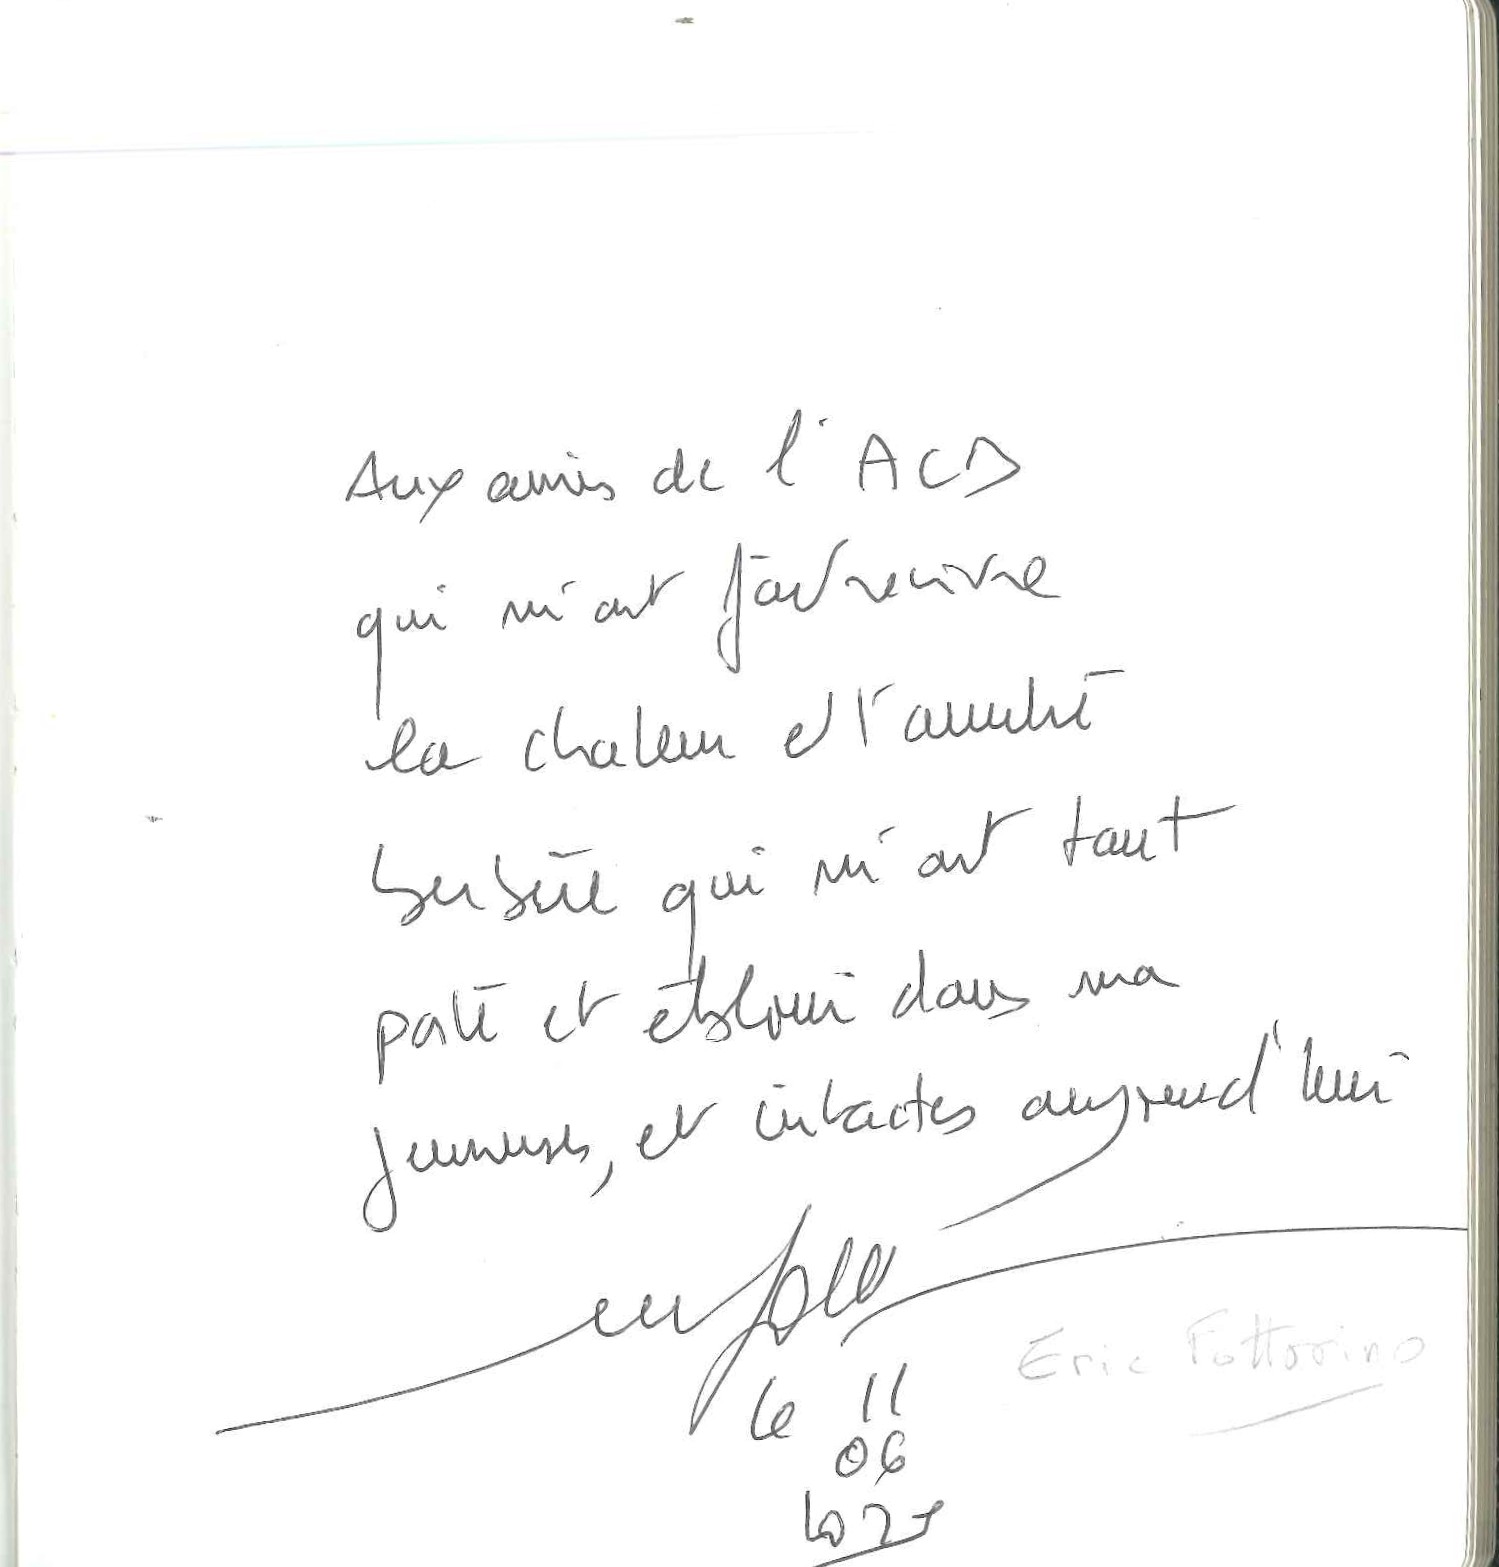 Aux amis de l'ACB
qui m'ont fait revivre
la chaleur et l'amitié
berbère qui m'ont tant
porté et ébloui dans ma
jeunesse, et intactes aujourd'hui
Le 11
06
2025
Eric Fottorino